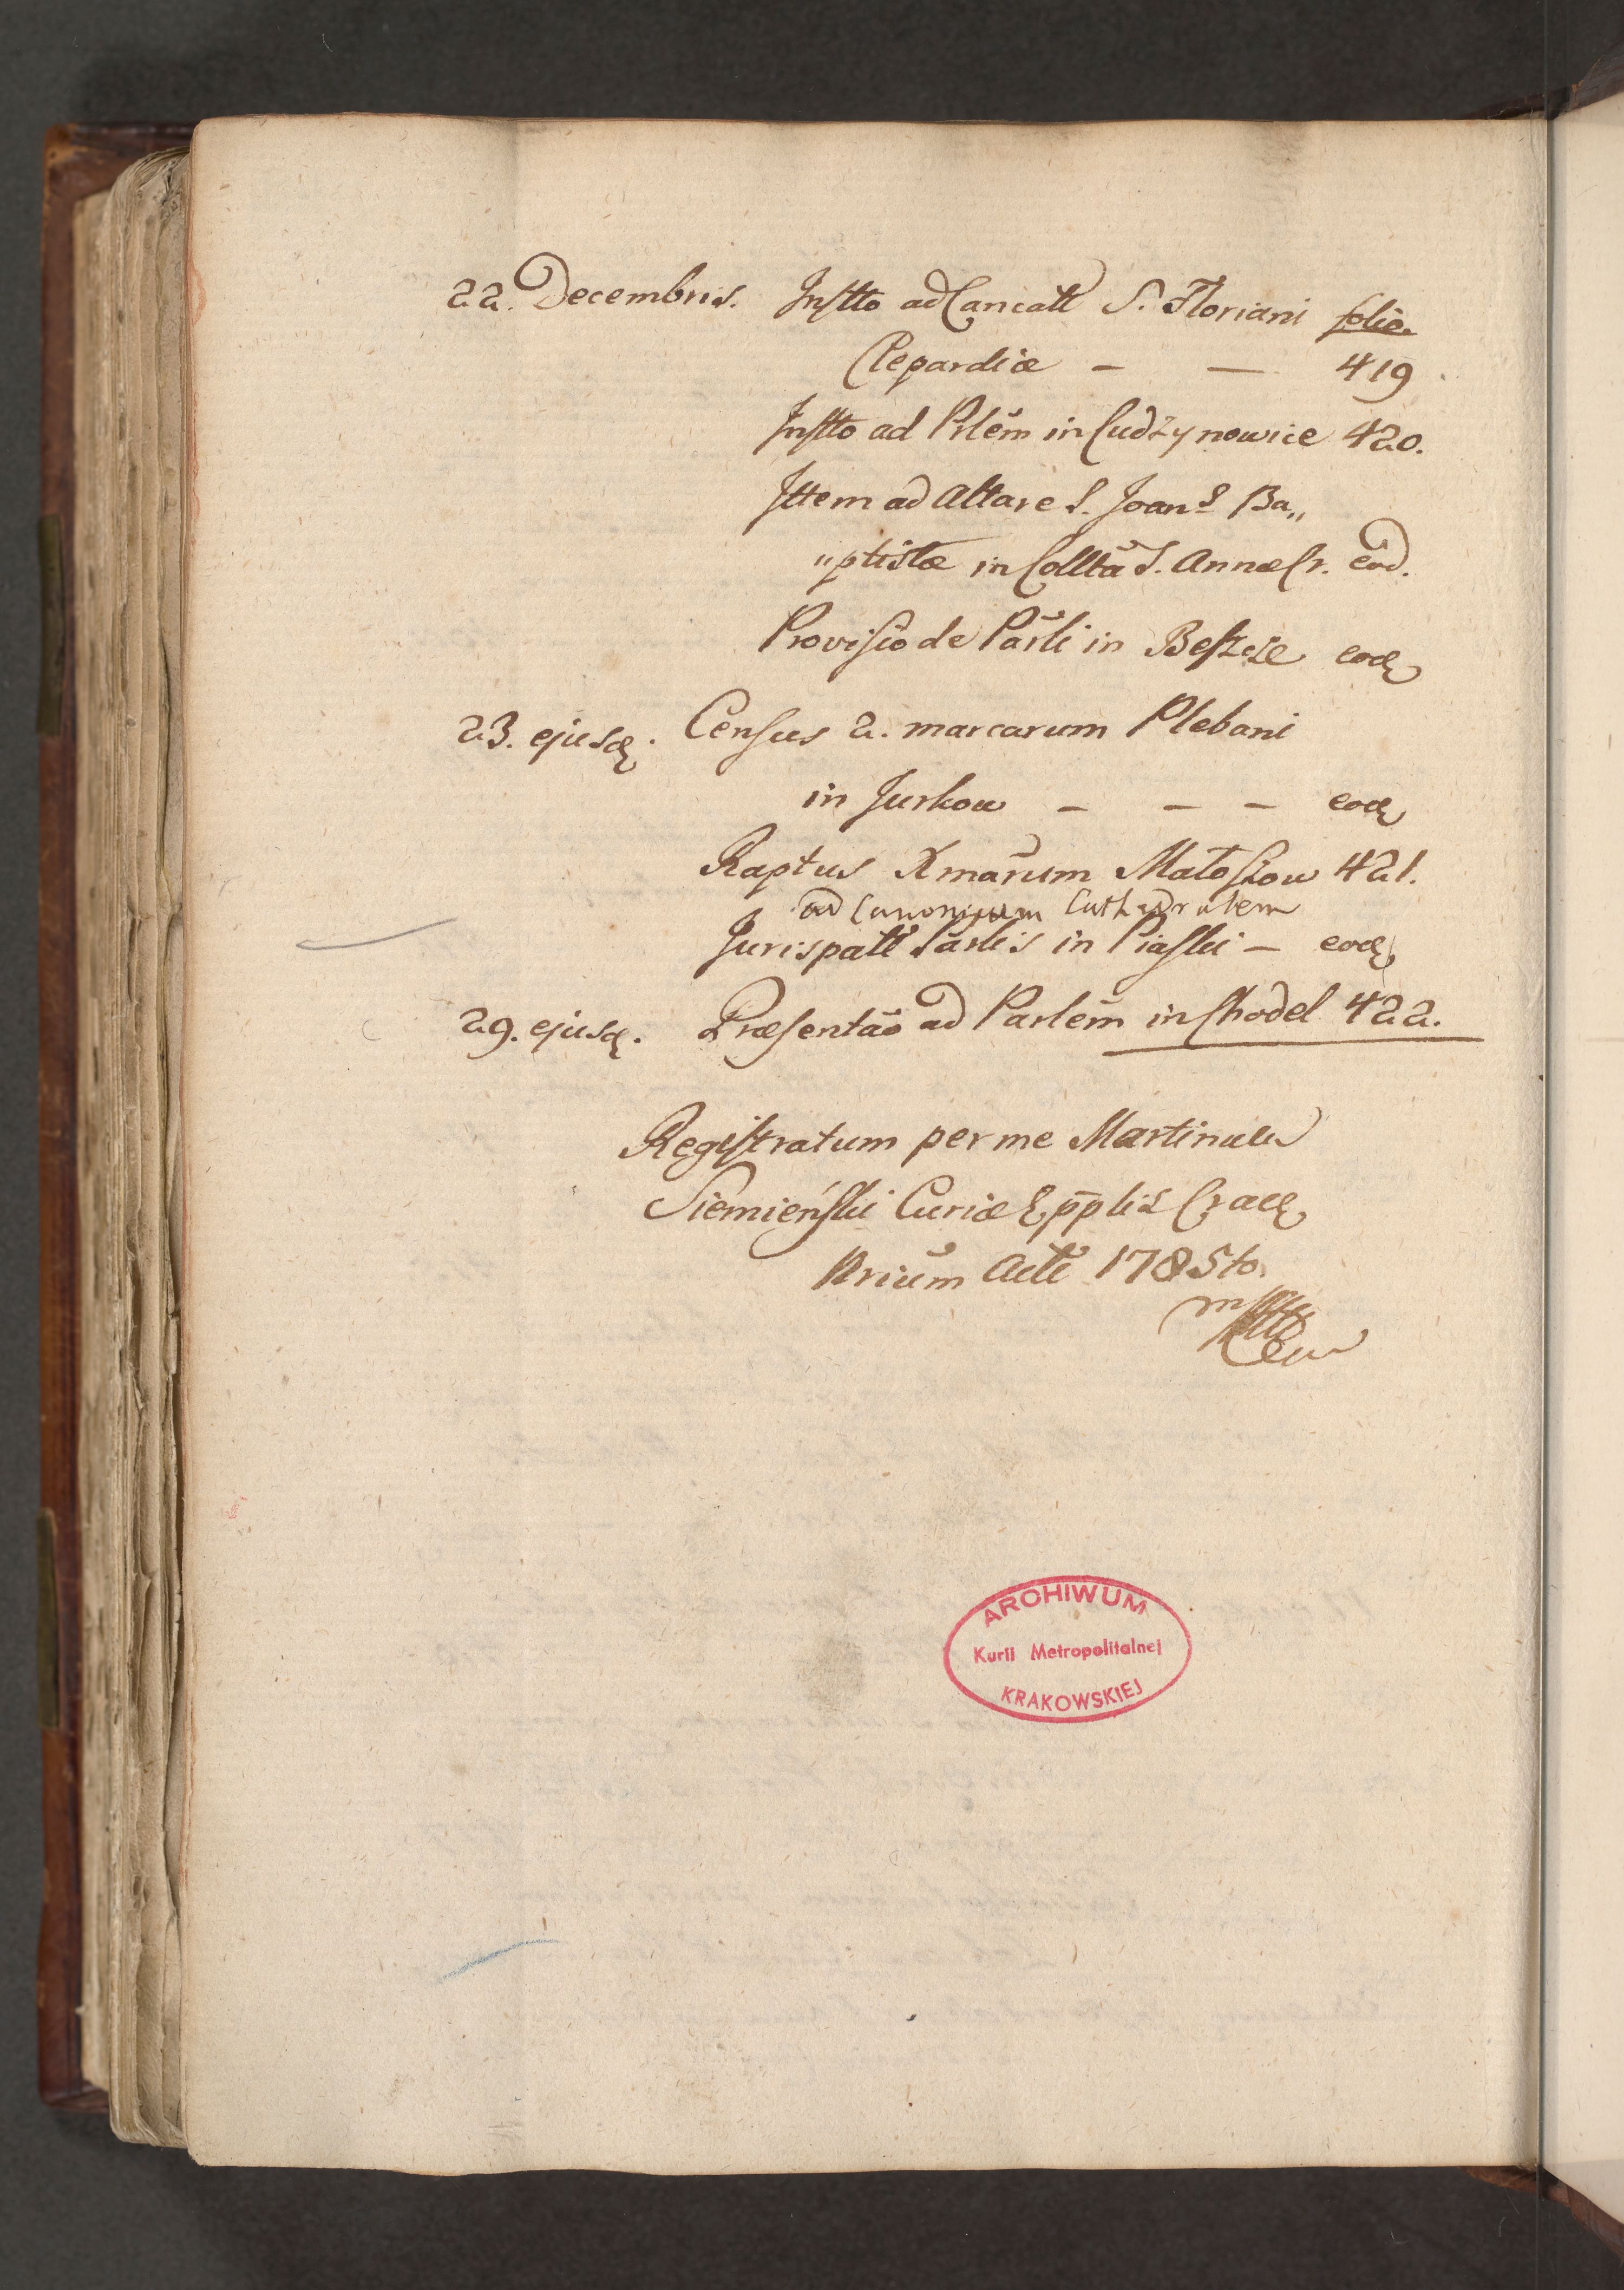 22. Decembris. Instto ad Cancatt S. Floriani folio
Clepardiæ — — 419
Instto ad Prlem in Cudzynowice 420.
Ittem ad Altare S. Joans Ba„
„ptistæ in Colltă S. Annæ Cr. eod.
Provisio de Parli in Beszcze eodꝫ
23. ejusdꝫ. Census 2. marcarum Plebani
in Jurkow — — — eodꝫ
Raptus Xmarum Matoszow 421.
ad Canonicum Cathedralem
Jurispatt Parlis in Piaski — eodꝫ
29. ejusdꝫ. Præsentão ad Parlem in Chodel 422.
Registratum per me Martinum
Siemieński Curiæ Epplis Cracꝫ
Nrium Actt 1785to
ARCHIWUM
Kurii Metropolitalnej
KRAKOWSKIEJ